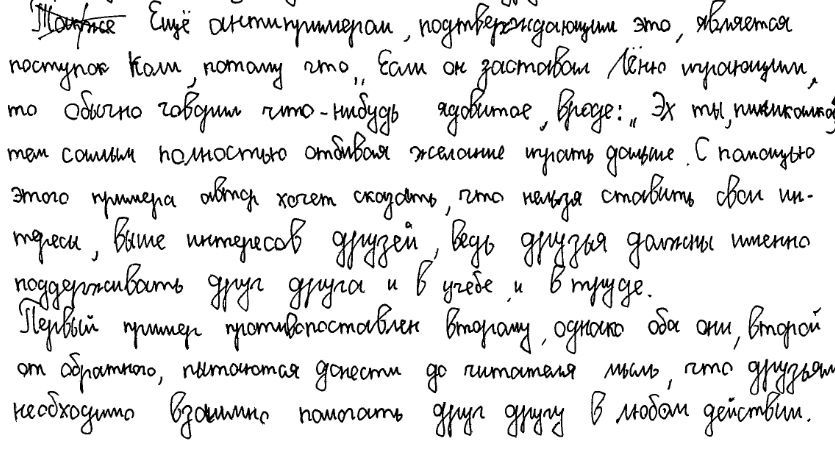 Ещё антипримером, подтверждающим это, является
поступок Коли, потому что „Если он заставал Лёню играющим,
то обычно говорил что-нибудь ядовитое, вроде: „Эх ты, пиликалка,
тем самым полностью отбивая желание играть дальше. С помощью
этого примера автор хочет сказать, что нельзя ставить свои ин-
тересы, выше интересов друзей, ведь друзья должны именно
поддерживать друг друга и в учебе, и в труде.
Первый пример противопоставлен второму, однако оба они, второй
от обратного, пытаются донести до читателя мысль, что друзьям
необходимо взаимно помогать друг другу в любом действии.